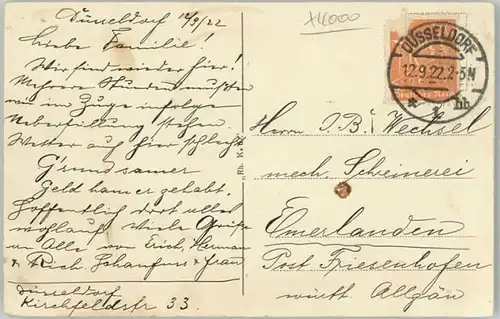 Düsseldorf 12/9/22
Liebe Familie!
Wir sind wieder hier!
Mehrere Stunden mußten
wir im Zuge infolge
Ueberfüllung stehen
Wetter auf hier schlecht
Grundsamer
Geld ham er gehabt.
Hoffentlich dort alles
wohlauf. Viele Grüße
an Alle von Erich, Herman
& Rich. Schaufuss & Frau
Düsseldorf
Kirchfeldstr 33.
DÜSSELDORF
12.9.22.2-5N
Herrn J.B. Wechsel
mech. Schreinerei
Emerlanden
Post Friesenhofen
württ. Allgäu